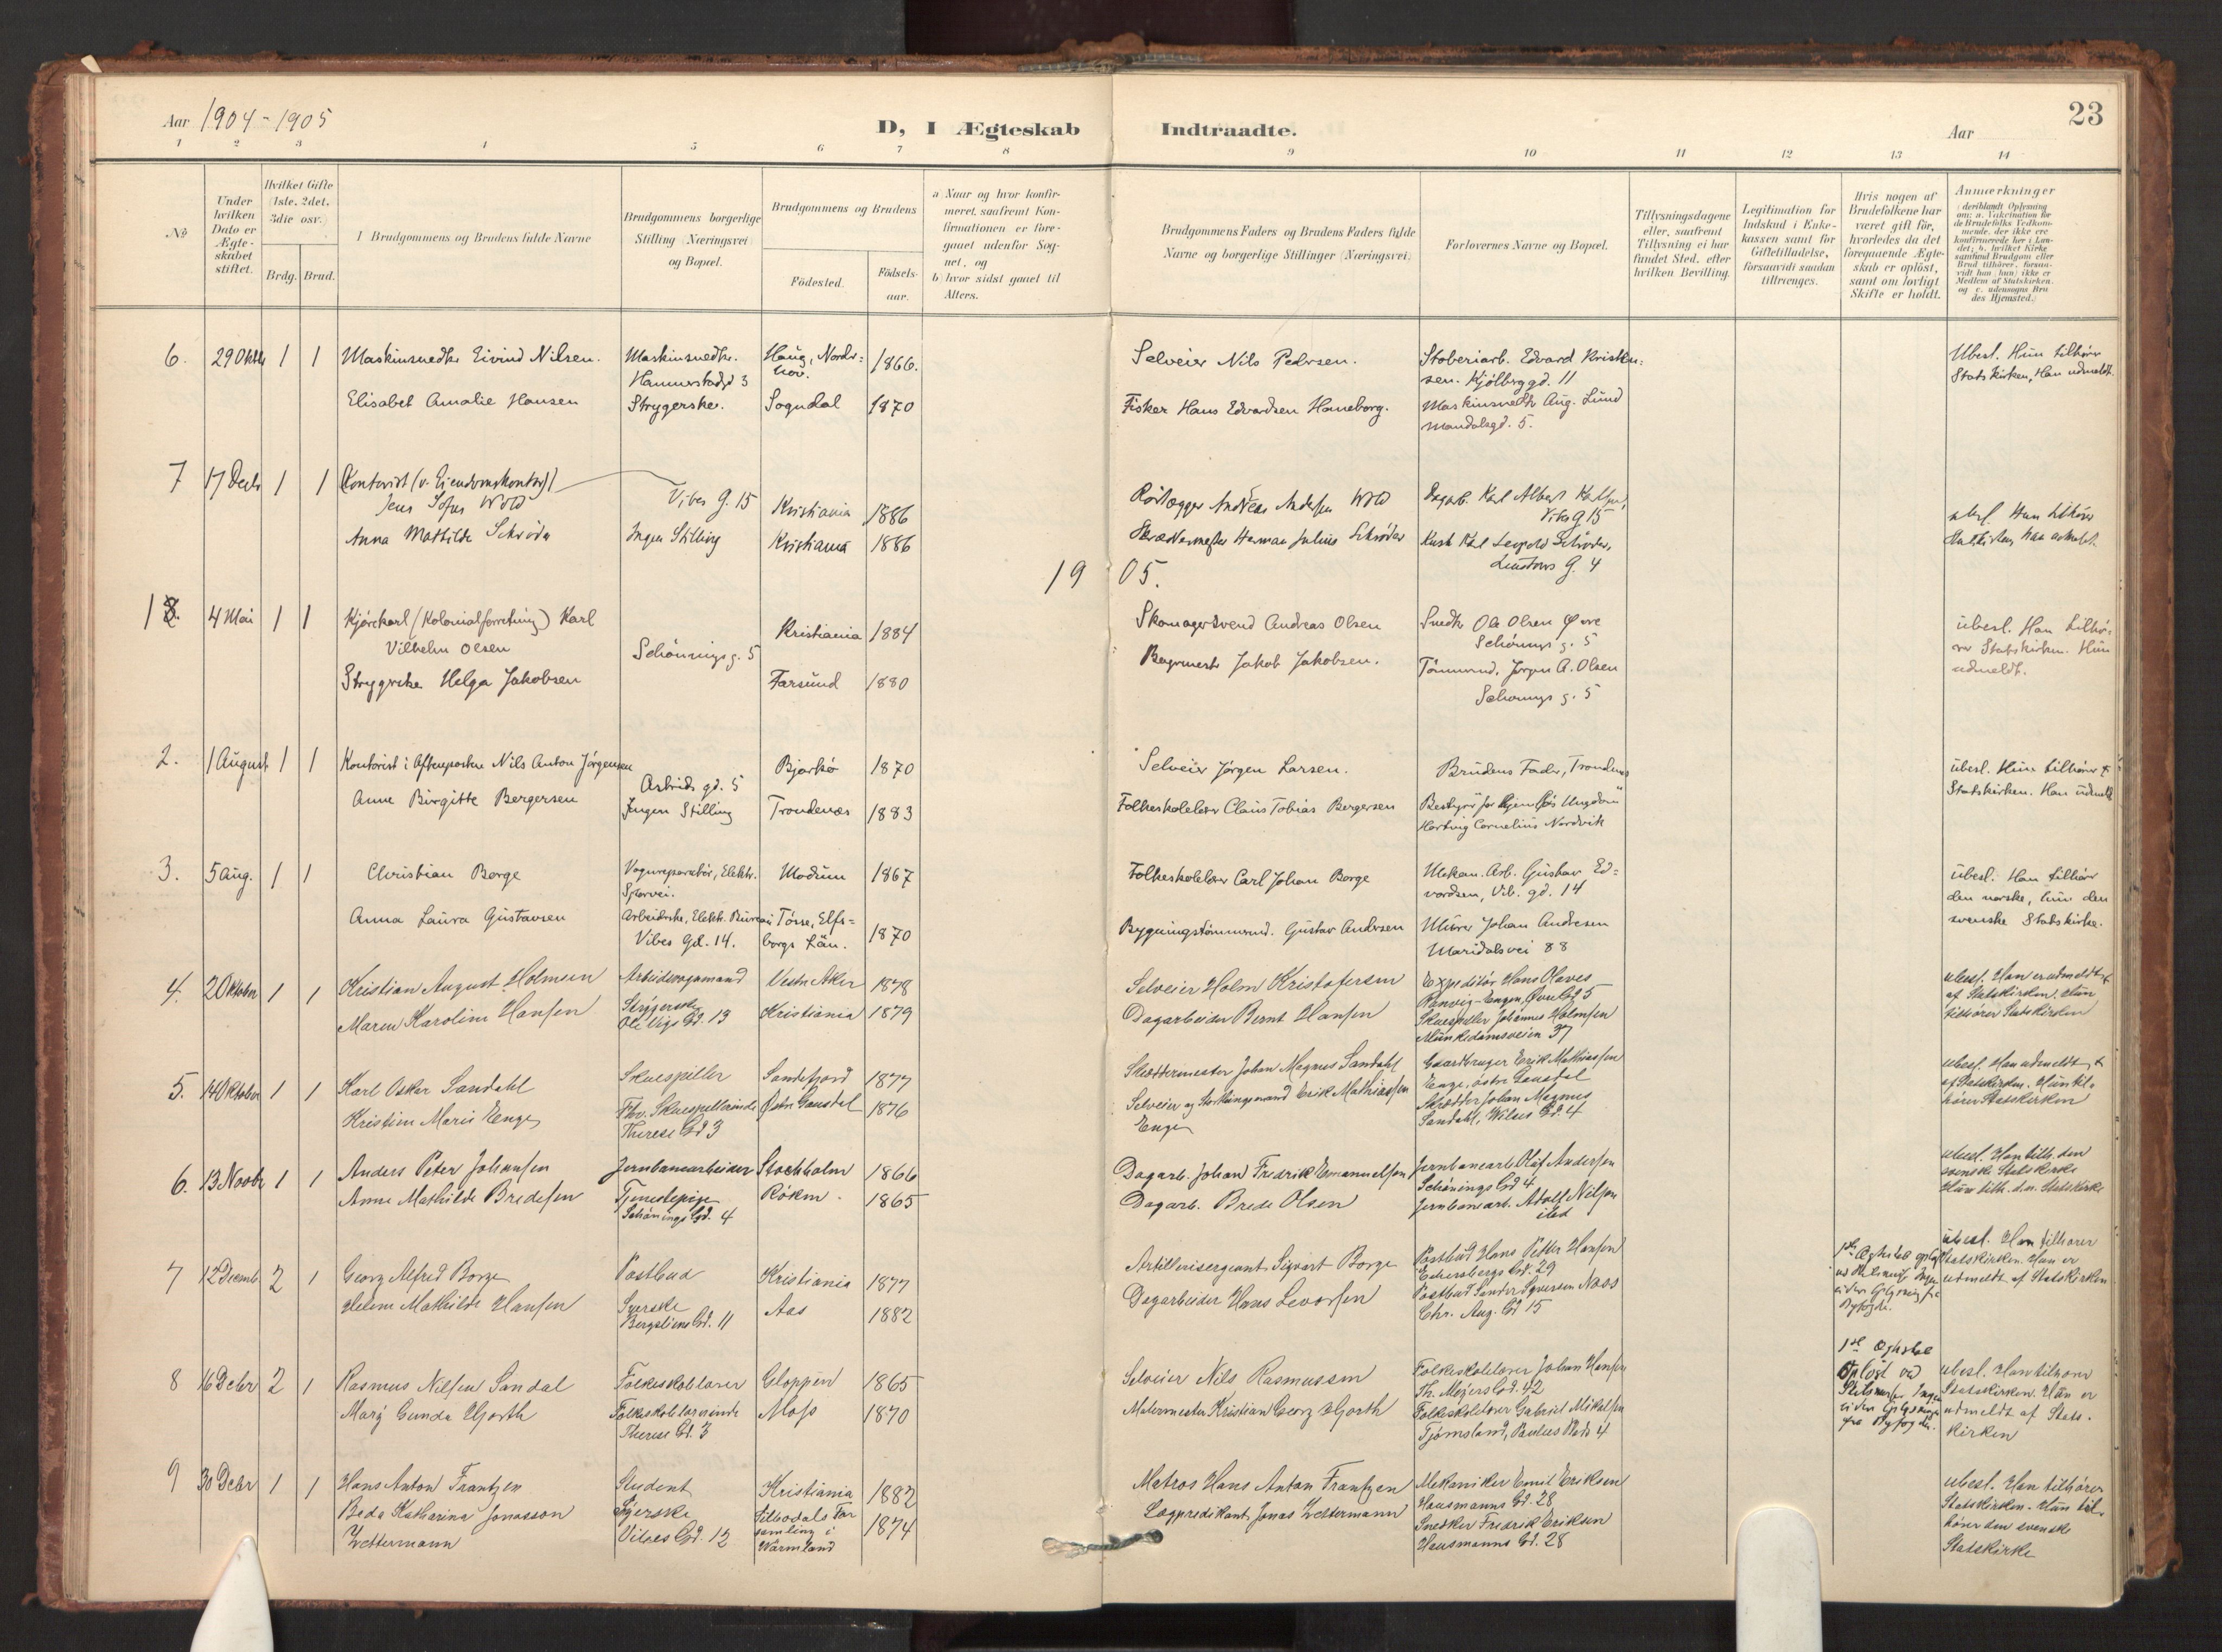 Aar 1904-1905
D, I Ægteskab Indtraadte.
Aar
23
1 2 3 4 5 6 7 8 9 10 11 12 13 14
No
Under hvilken Dato er Ægteskabet stiftet.
Hvilket Gifte (1ste, 2det, 3die osv.)
Brdg. Brud.
Brudgommens og Brudens fulde Navne
Brudgommens borgerlige Stilling (Næringsvei) og Bopæl.
Brudgommens og Brudens
Födested.
Födsels-aar.
a) Naar og hvor konfirmeret, saafremt Konfirmationen er foregaaet udenfor Sognet, og
b) hvor sidst gaaet til Alters.
Brudgommens Faders og Brudens Faders fulde Navne og borgerlige Stillinger (Næringsvei)
Forlovernes Navne og Bopæl.
Tillysningsdagene eller, saafremt Tillysning ei har fundet Sted, efter hvilken Bevilling.
Legitimation for Indskud i Enkekassen samt for Giftetilladelse, forsaavidt saadan tiltrænges.
Hvis nogen af Brudefolkene har været gift för, hvorledes da det foregaaende Ægteskab er oplöst, samt om lovligt Skifte er holdt.
Anmærkninger
6. 29 Oktb 1 1 Maskinsnedker Eivind Nilsen. Maskinsnedkr. Haug, Norder=hov. 1866. Selveier Nils Pedersen. Stoberiarb. Edvard Kristen=sen. Kjölberggd. 11 Ubesl. Hun tilhörer Statskirken, Han udmeldt.
Hammerstadgd 3
Elisabet Amalie Hansen Strygerske. Sogndal 1870 Fisker Hans Edvardsen Haneborg. Maskinsnedkr Aug. Lund Mandalsgd. 5.
7 17 Decbr 1 1 Kontorist (v. Eiendomskontor) Jens Sofus Wold Vibes G. 15 Kristiania 1886 Rörlægger Andreas Andersen Wold Dagarb. Karl Albert Vibes G 15
Anna Mathilde Schröder Ingen Stilling Kristiania 1886 Skræddermester Herman Julius Schröder Kusk Karl Leopold Schröder, Lindtows G. 4
1905.
1 4 Mai 1 1 Kjörekarl (Kolonialforretning) Karl Vilhelm Olsen Schönnings g. 5 Kristiania 1884 Skomagersvend Andreas Olsen Snedk Ole Olsen Schönings g. 5 ubesl. Han tilhö-rer Statskirken. Hun udmeldt.
Strygerske Helga Jakobsen Farsund 1880 Jakob Jakobsen. Tömmermd. Jörgen A. Olsen Schönings g. 5
2. 1 August 1 1 Kontorist i Aftenposten Nils Anton Jörgensen Astrids gd. 5 Bjarkö 1870 Selveier Jörgen Larsen. Brudens Fader, Trondenes ubesl. Hun tilhörer Statskirken. Han udmeldt
Anne Birgitte Bergersen Ingen Stilling Trondenes 1883 Folkeskolelærer Claus Tobias Bergersen Bestyrer for Hjemlös Ungdom Hartvig Cornelius Nordvik
3. 5 Aug. 1 1 Christian Borge Vognreparatör, Elektr. Sporvei. Modum 1867 Folkeskolelærer Carl Johan Borge Mekan. Arb. Gustav Ed=vardsen, Vib. gd. 14 ubesl. Han tilhörer den norske, hun den svenske Statskirke.
Anna Laura Gustavsen Arbeiderske, Elektr. Bureau Vibes Gd. 14. Tösse, Elfs=borgs Län. 1870 Bygningstömmermd. Gustav Andersen Murer Johan Andresen Maridalsvei 88
4. 2 Oktober 1 1 Kristian August Holmsen Arbeidsformand Vestre Aker 1878 Selveier Holm Kristofersen Expeditör Hans Olaves ubesl. Han er udmeldt af Statskirken. Hun tilhörer Statskirken
Maren Karoline Hansen Strygerske Ole Vigs Gd. 13 Kristiania 1879 Dagarbeider Bernt Hansen Skuespiller Johannes Holmsen Munkedamsveien 37
5. 14 Oktober 1 1 Karl Oskar Sandahl Skuespiller Sandefjord 1877 Skræddermester Johan Magnus Sandahl Gaardbruger Erik Mathiassen Enge, östre Gausdal ubesl. Han udmeldt af Statskirken. Hun til-hörer Statskirken
Kristine Marie Enge Fhv. Skuespillerinde Therese Gd 3 Östre Gausdal 1876 Selveier og Storthingsmand Erik Mathiassen Enge Skrædder Johan Magnus Sandahl, Wilses Gd. 4
6. 13 Novbr 1 1 Anders Peter Johansen Jernbanearbeider Stockholm 1866 Dagarb. Johan Fredrik Emanuelsen Jernbanearb. Olaf Andersen Schönings Gd 4 ubesl. Han tilh. den svenske Statskirke Hun tilh. d.n. Statskirke
Anne Mathilde Bredesen Tjenestepige Schönings Gd. 4 Röken 1865 Dagarb. Brede Olsen Jernbanearb. Adolf Nilsen
7 12 Decemb 2 1 Georg Alfred Borge Postbud Kristiania 1877 Artillerisergeant Sigvart Borge Postbud Hans Petter Hansen Eckersbergs Gd. 29 ubesl. Hun tilhörer Statskirken. Han er udmeldt af Statskirken
Helene Mathilde Hansen Syerske Bergsliens Gd. 11 Aas 1882 Dagarbeider Hans Levorsen Postbud Sander Næss Chr. Aug. Gd 15
8 16 Decbr 2 1 Rasmus Nilsen Sandal Folkeskolelærer Gloppen 1865 Selveier Nils Rasmussen Folkeskolelærer Johan Hansen Th. Meyers Gd. 42 1ste Ægteskab Oplöst ved ubesl. Han tilhörer Statskirken. Hun er udmeldt af Stats-kirken
Mary Gunda Hjorth Folkeskolelærerinde Therese Gd. 3 Moss 1870 Malermester Kristian Georg Hjorth Folkeskolelærer Gabriel Mikalsen Tjömsland, Paulus Plads 4
9 30 Decbr 1 1 Hans Anton Frantzen Student Kristiania 1882 Matros Hans Anton Frantzen Mekaniker Emil Eriksen Hausmanns Gd. 28 ubesl. Han tilhörer Statskirken. Hun til-hörer den svenske Statskirke
Beda Katharina Jonasson Wettermann Syerske Vibes Gd. 12 Tilbodals For samling i Wärmland 1874 Lægprædikant Jonas Wettermann Snedker Fredrik Eriksen Hausmanns Gd. 28